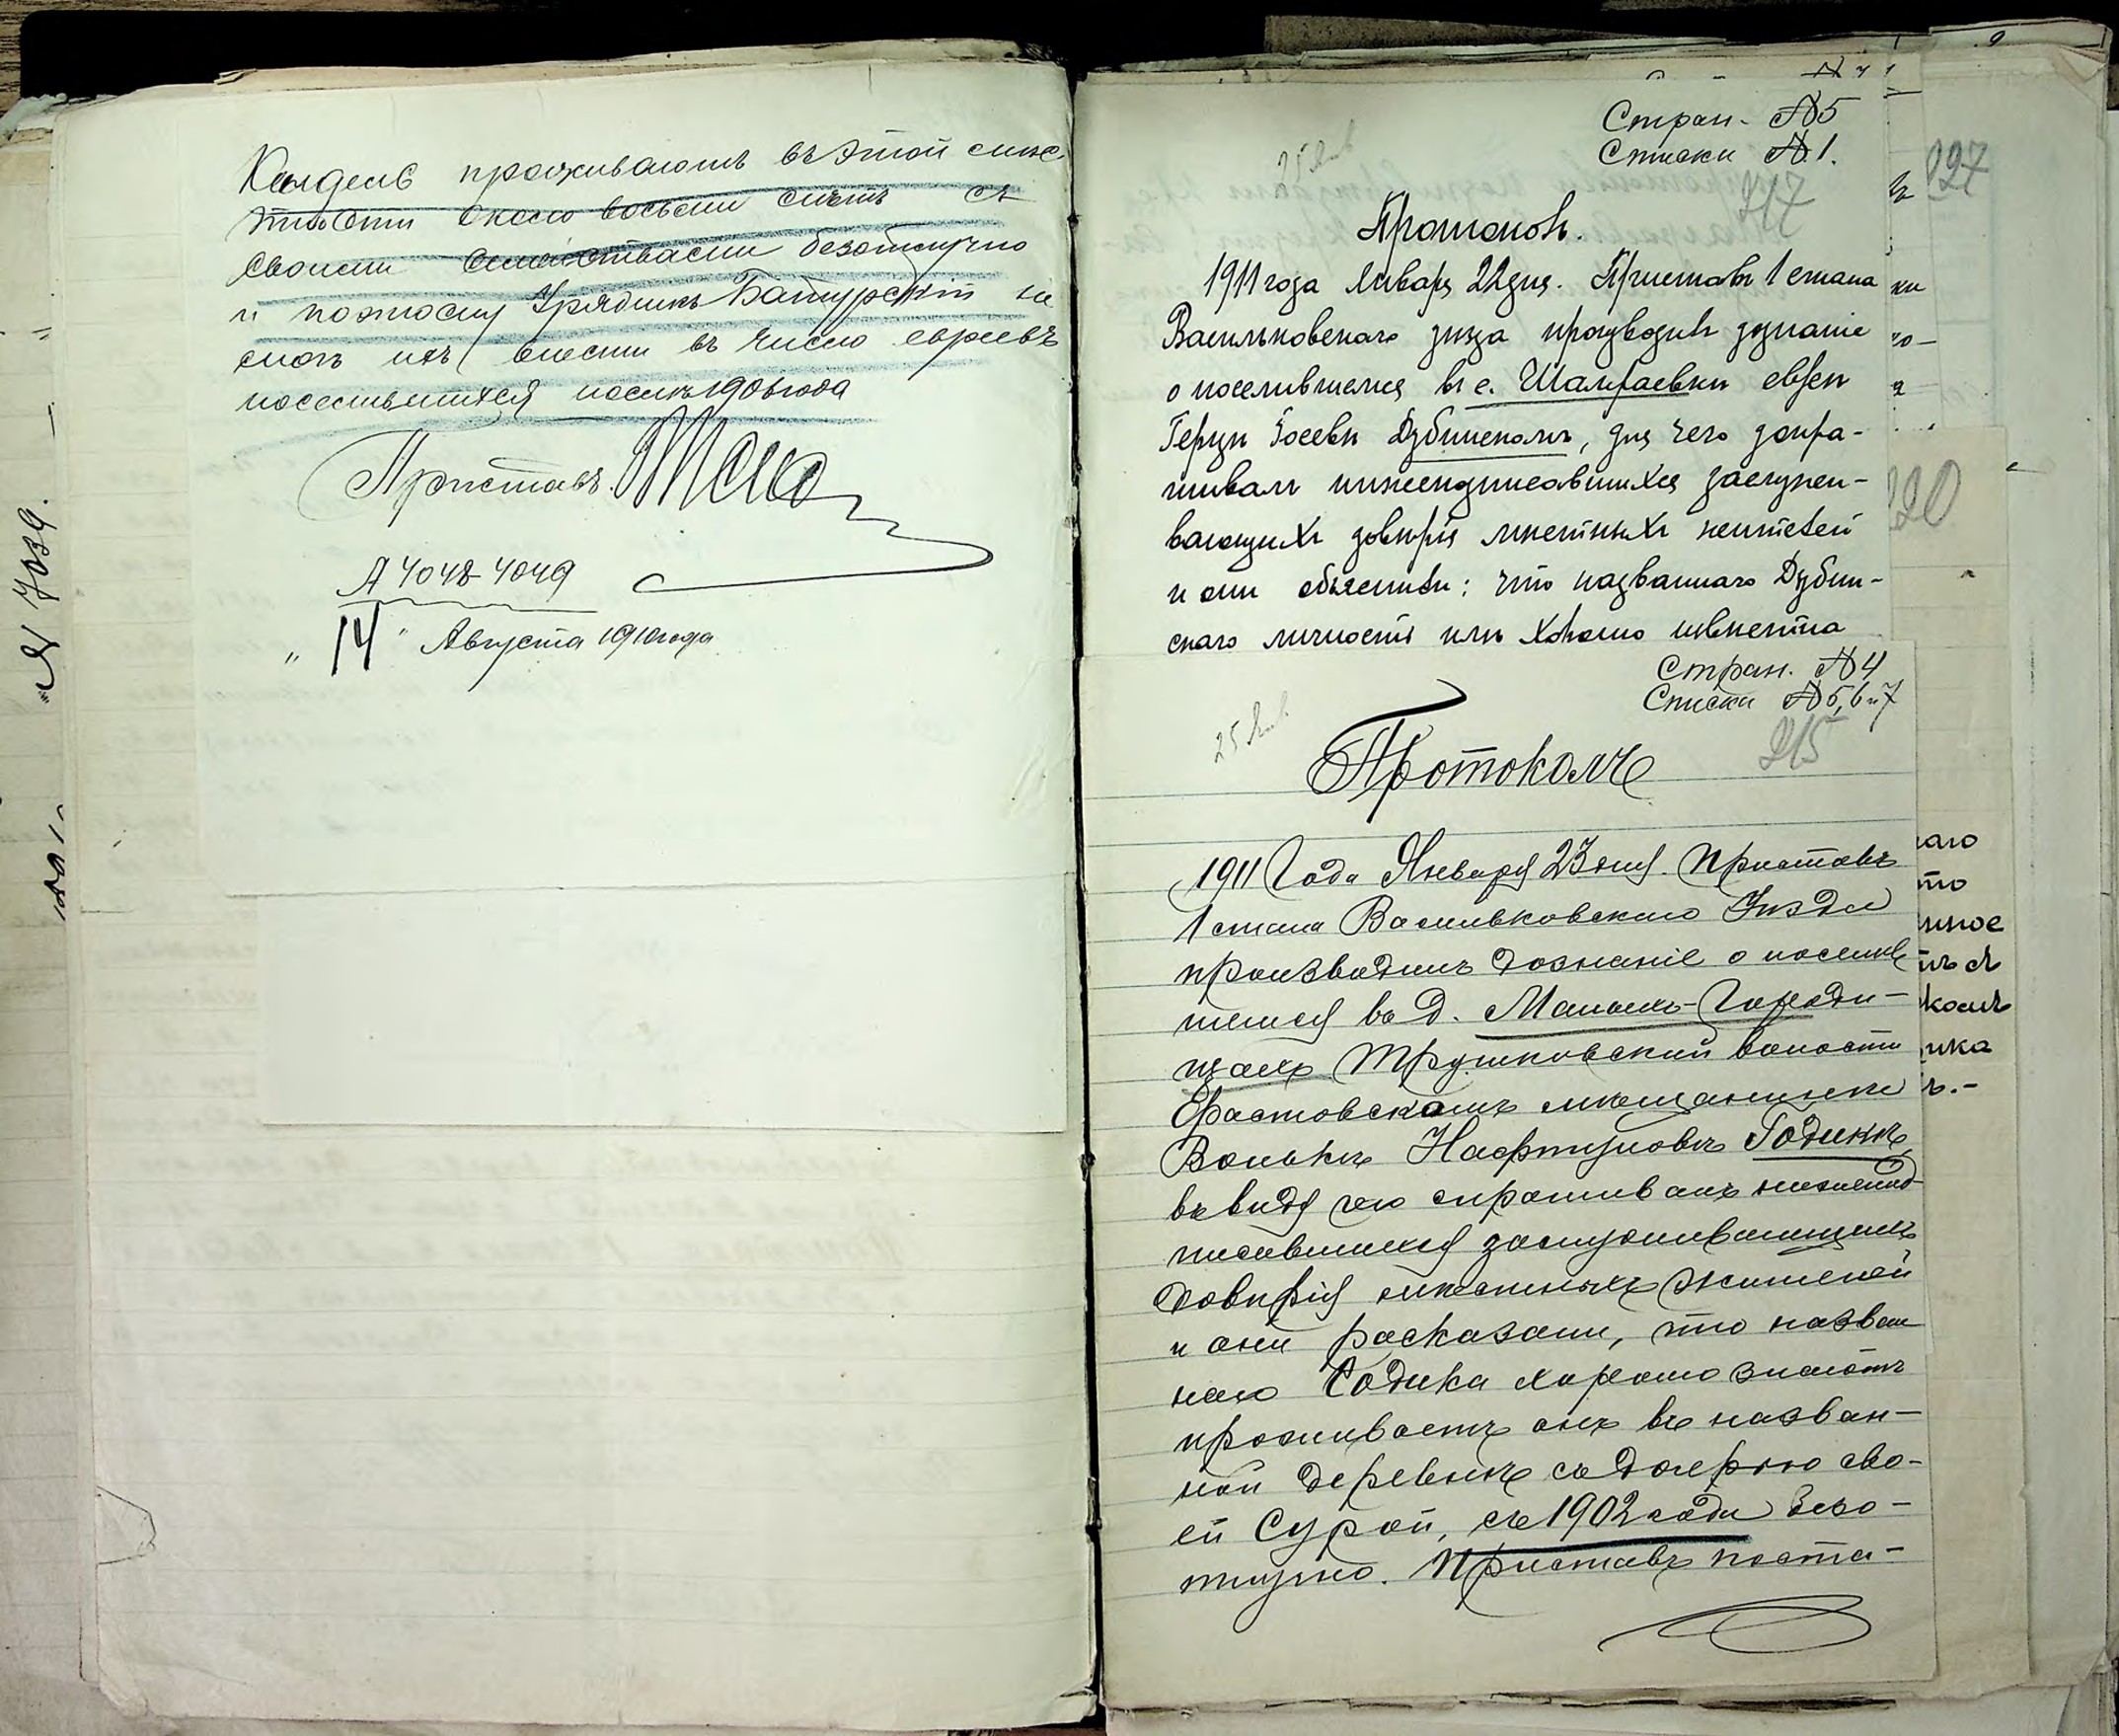 проживаютъ въ этой
около восьми лѣтъ съ
своими семействами безотлучно
и поэтому Урядникъ Батурскій не
могъ ихъ внести въ число евреевъ
поселившихся послѣ 1906 года
Приставъ
№ 4048-4049
"14" Августа 1910 года
№ 7039.
Стран. № 5
Списки № 1.
25 Янв
217
Протоколъ.
1911 года Января 22 дня. Приставъ 1 стана
Васильковскаго уѣзда производилъ дознаніе
о поселившемся въ с. Шамраевки евреи
Герцн Іосевн Дубинскомъ, для чего допра-
шивалъ нижеподписавшихся заслужи-
вающихъ довѣрія мѣстныхъ жителей
и они объяснили: что названнаго Дубин-
скаго личность имъ хорошо извѣстна
Стран. № 4
Списки № 5, 6 и 7
25 Янв
215
Протоколъ
1911 Года Января 23 дня. Приставъ
1 стана Васильковскаго Уѣзда
производилъ дознаніе о поселив
шемся въ д. Малыхъ-Городи-
щахъ Трушковской волости
Фастовскомъ мѣщанинѣ
Волькѣ Нафтуловѣ Годикѣ,
въ виду чего спрашивалъ нижепод-
писавшихся заслуживающихъ
довѣрія мѣстныхъ жителей
и они расказали, что назван
наго Годика хорошо знаютъ
проживаетъ онъ въ назван-
ной деревнѣ съ дочерью сво-
ей Сурой, съ 1902 года безо-
тлучно. Приставъ поста-
227
220